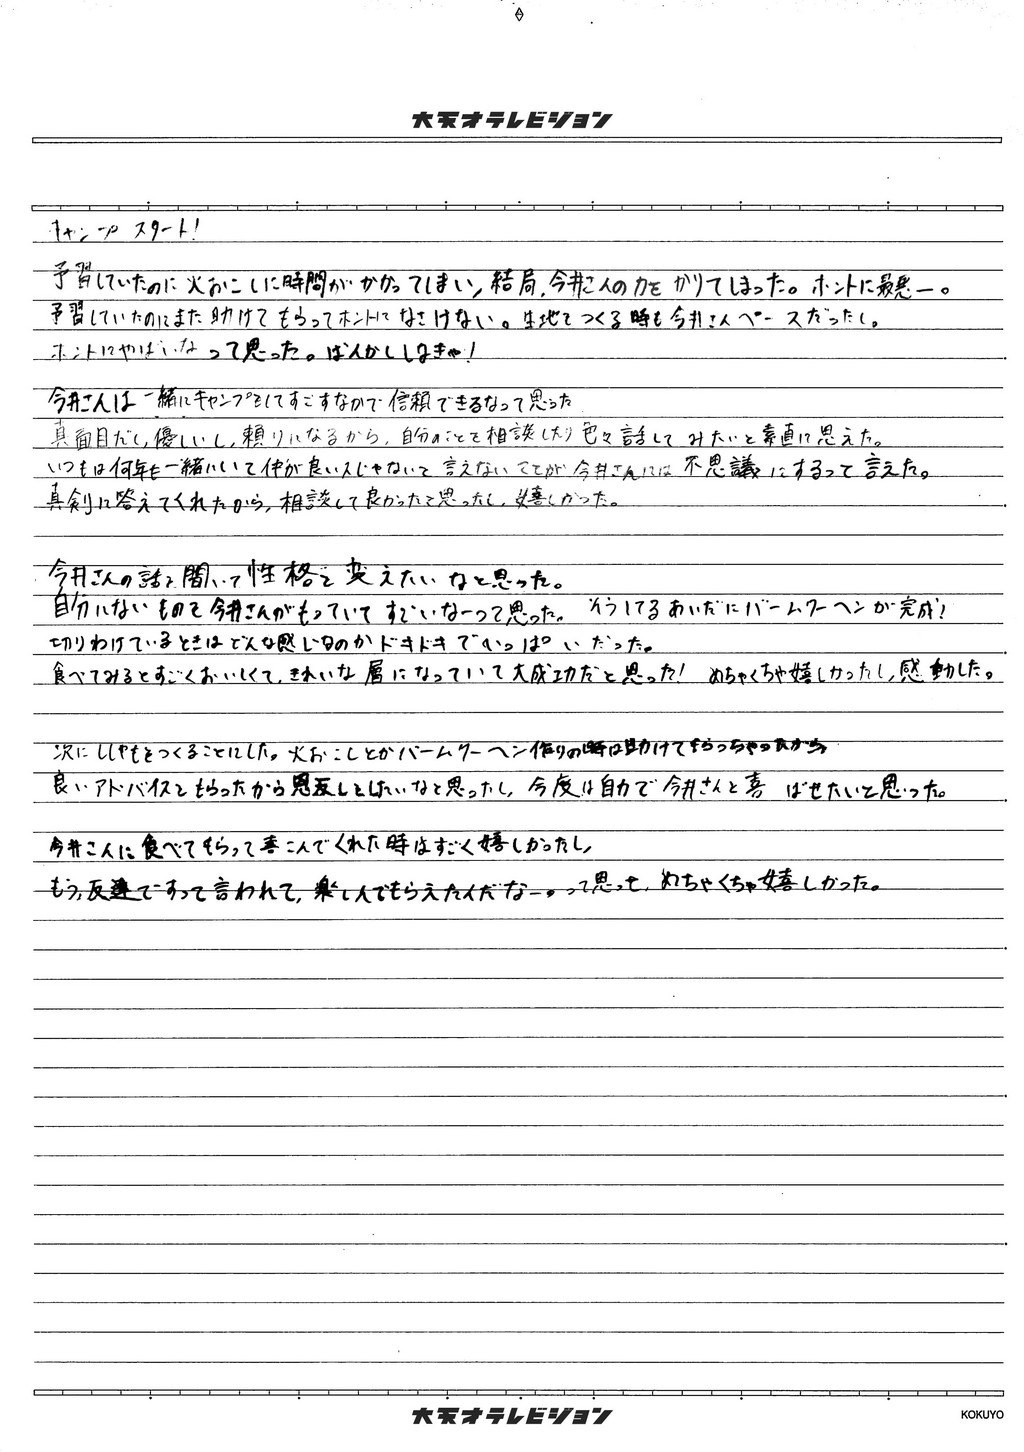 大天才テレビジョン
キャンプスタート!
予習していたのに火おこしに時間がかかってしまい、結局、今井さんの力をかりてしまった。ホントに最悪ー。
予習していたのにまた助けてもらってホントになさけない。生地をつくる時も今井さんペースだったし。
ホントにやばいなって思った。ばんかいしなきゃ!
今井さんは一緒にキャンプをしてすごすなかで信頼できるなって思った
真面目だし、優しいし、頼りになるから、自分のことを相談したり色々話してみたいと素直に思えた。
いつもは何年も一緒にいて仲が良い人じゃないと言えないことが今井さんには不思議にするって言えた。
真剣に答えてくれたから、相談して良かったと思ったし、嬉しかった。
今井さんの話を聞いて性格を変えたいなと思った。
自分にないものを今井さんがもっていてすごいなーって思った。そうしてるあいだにバームクーヘンが完成!
切りわけているときはどんな感じなのかドキドキでいっぱいだった。
食べてみるとすごくおいしくて、きれいな層になっていて大成功だと思った!めちゃくちゃ嬉しかったし、感動した。
次にししゃもをつくることにした。火おこしとかバームクーヘン作りの時は助けてもらっちゃったから、
良いアドバイスをもらったから恩返しをしたいなと思ったし、今度は自力で今井さんを喜ばせたいと思った。
今井さんに食べてもらって喜こんでくれた時はすごく嬉しかったし、
もう、友達ですって言われて、楽しんでもらえたんだなー。って思って、めちゃくちゃ嬉しかった。
大天才テレビジョン
KOKUYO